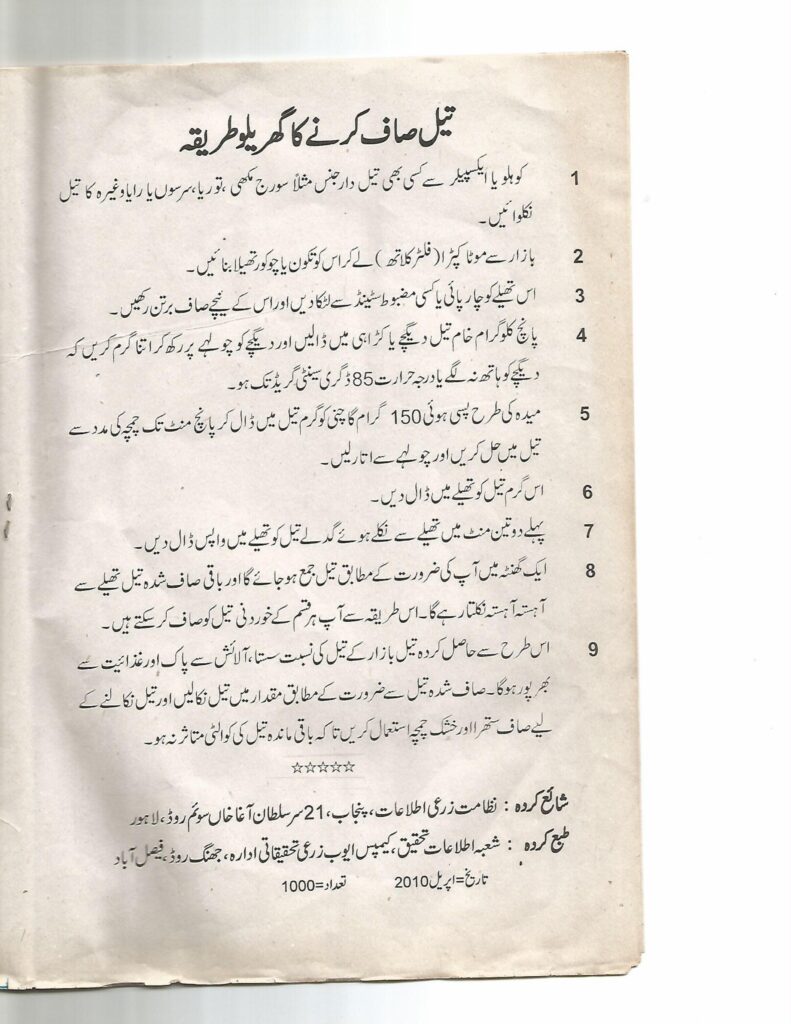 تیل صاف کرنے کا گھریلو طریقہ
1 کوہلو یا ایکسپیلر سے کسی بھی تیل دار جنس مثلاً سورج مکھی ،توریا،سرسوں یا رایا وغیرہ کا تیل
نکلوائیں۔
2 بازار سے موٹا کپڑا (فلٹر کلاتھ) لے کر اس کو تکون یا چوکور تھیلا بنائیں۔
3 اس تھیلے کو چارپائی یا کسی مضبوط سٹینڈ سے لٹکا دیں اور اس کے نیچے صاف برتن رکھیں۔
4 پانچ کلوگرام خام تیل دیگچے یا کڑاہی میں ڈالیں اور دیگچے کو چولہے پر رکھ کر اتنا گرم کریں کہ
دیگچے کو ہاتھ نہ لگے یا درجہ حرارت 85 ڈگری سینٹی گریڈ تک ہو۔
5 میدہ کی طرح پسی ہوئی 150 گرام گاچنی کو گرم تیل میں ڈال کر پانچ منٹ تک چمچہ کی مدد سے
تیل میں حل کریں اور چولہے سے اتار لیں۔
6 اس گرم تیل کو تھیلے میں ڈال دیں۔
7 پہلے دو تین منٹ میں تھیلے سے نکلے ہوئے گدلے تیل کو تھیلے میں واپس ڈال دیں۔
8 ایک گھنٹہ میں آپ کی ضرورت کے مطابق تیل جمع ہو جائے گا اور باقی صاف شدہ تیل تھیلے سے
آہستہ آہستہ نکلتا رہے گا۔ اس طریقہ سے آپ ہر قسم کے خوردنی تیل کو صاف کر سکتے ہیں۔
9 اس طرح سے حاصل کردہ تیل بازار کے تیل کی نسبت سستا، آلائش سے پاک اور غذائیت سے
بھرپور ہوگا۔ صاف شدہ تیل سے ضرورت کے مطابق مقدار میں تیل نکالیں اور تیل نکالنے کے
لیے صاف ستھرا اور خشک چمچہ استعمال کریں تا کہ باقی ماندہ تیل کی کوالٹی متاثر نہ ہو۔
☆☆☆☆☆
شائع کردہ : نظامت زرعی اطلاعات، پنجاب، 21 سر سلطان آغا خاں سوئم روڈ، لاہور
طبع کردہ : شعبہ اطلاعات تحقیق، کیمپس ایوب زرعی تحقیقاتی ادارہ، جھنگ روڈ، فیصل آباد
تاریخ=اپریل 2010 تعداد=1000